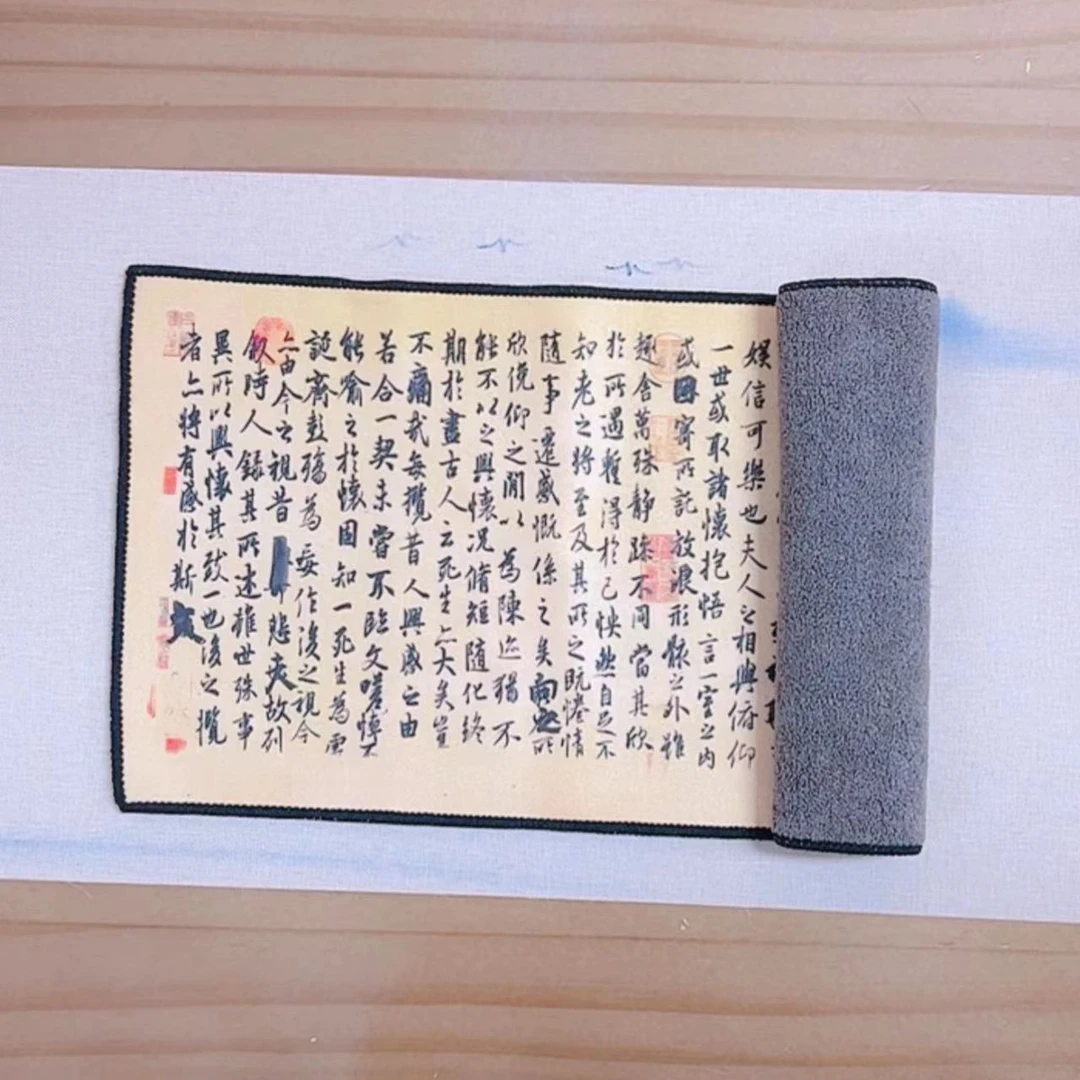 娱信可樂也夫人之相與俯仰
一世或取諸懷抱悟言一室之内
或因寄所託放浪形骸之外雖
趣舍萬殊静躁不同當其欣
於所遇暫得於己怏然自足不
知老之將至及其所之既惓情
隨事遷感慨係之矣向之所
欣俛仰之閒以為陳迹猶不
能不以之興懷况脩短隨化終
期於盡古人云死生亦大矣豈
不痛哉每攬昔人興感之由
若合一契未嘗不臨文嗟悼不
能喻之於懷固知一死生為虛
誕齊彭殤為妄作後之視今
亦由今之視昔悲夫故列
叙時人録其所述雖世殊事
異所以興懷其致一也後之攬
者亦將有感於斯文